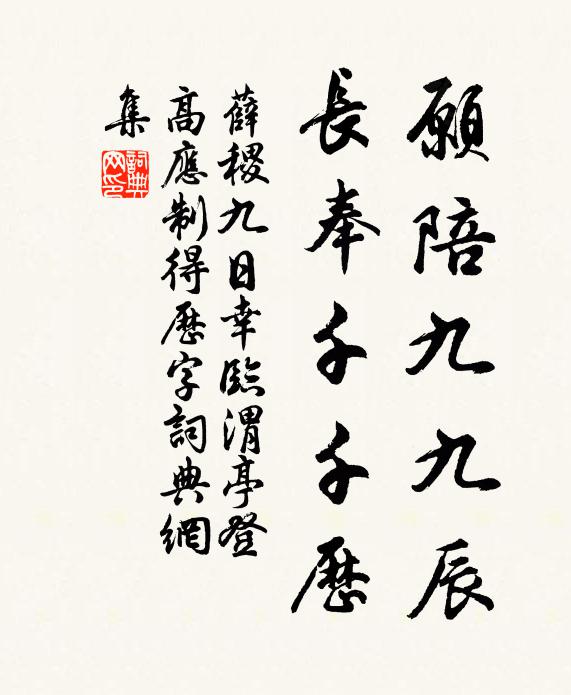 願陪九九辰
長奉千千歷
薛稷九日幸臨渭亭登
高應制得歷字詞典網
集
詞典
网印